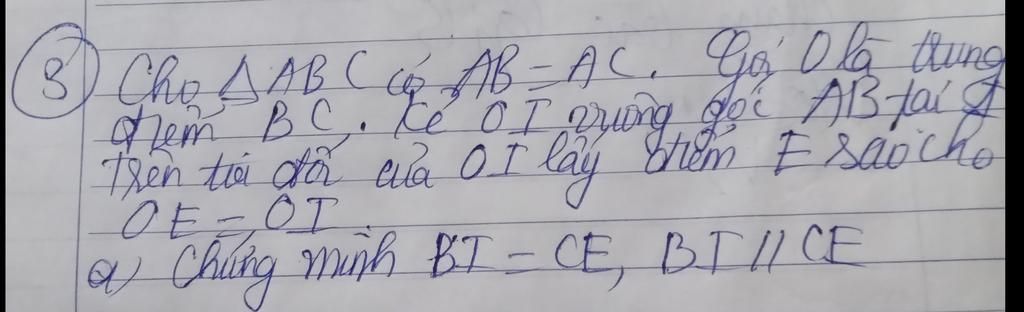 3
Cho △ABC có AB = AC. Gọi O là trung
điểm BC. Kẻ OI vuông góc AB tại I
Trên tia đối của OI lấy điểm E sao cho
OE = OI.
a) Chứng minh BI = CE, BI // CE